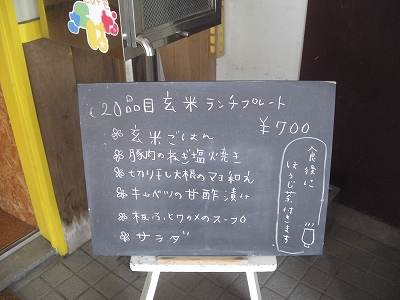 20品目 玄米 ランチプレート
¥700
玄米ごはん
豚肉のねぎ塩焼き
切り干し大根のマヨ和え
キャベツの甘酢漬け
板ふとワカメのスープ
サラダ
食後に
ほうじ茶付きます